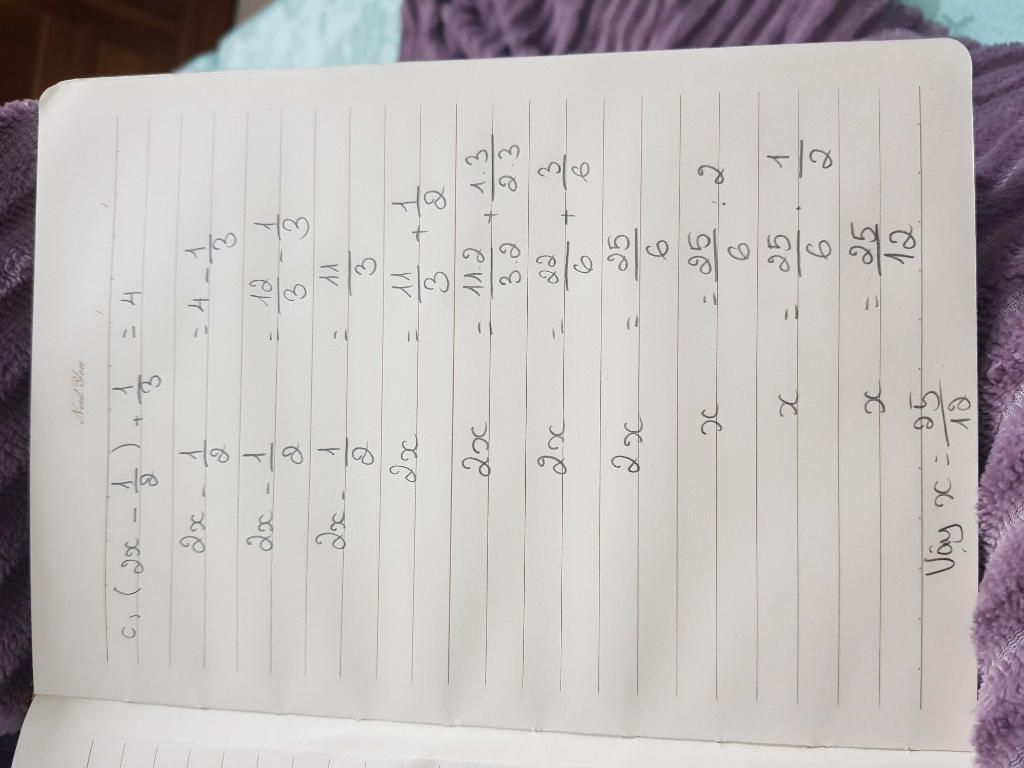 c, (2x - 1/2) + 1/3 = 4
2x - 1/2 = 4 - 1/3
2x - 1/2 = 12/3 - 1/3
2x - 1/2 = 11/3
2x = 11/3 + 1/2
2x = 11.2/3.2 + 1.3/2.3
2x = 22/6 + 3/6
2x = 25/6
x = 25/6 : 2
x = 25/6 . 1/2
x = 25/12
Vậy x = 25/12